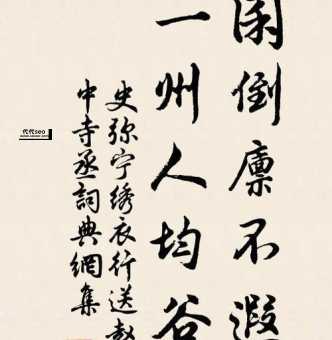 囷倒廩不遐
一州人均谷
史弥宁绣衣行送赵
中寺丞詞典網集
代代seo